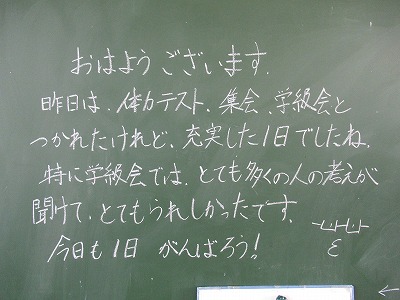 おはようございます.
昨日は、体力テスト、集会、学級会と
つかれたけれど、充実した1日でしたね.
特に学級会では、とても多くの人の考えが
聞けて、とてもうれしかったです.
今日も1日 がんばろう!